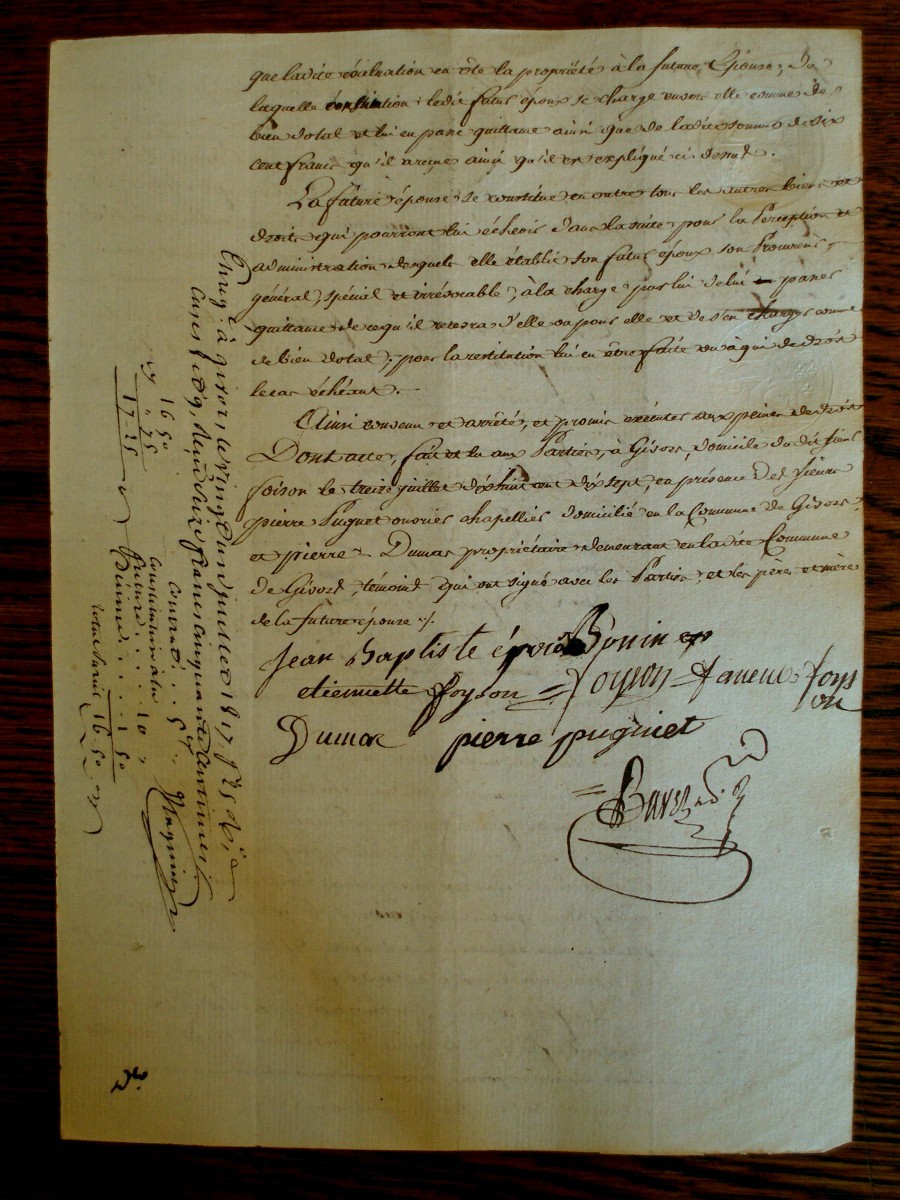 que ladite évaluation en ôte la propriété à la future Epouse, de
laquelle constitution ledit futur époux se charge envers elle comme de
bien dotal et lui en passe quittance ainsi que de ladite somme de six
cent francs qu'il a reçue ainsi qu'il est expliqué ci-dessus.
La future épouse se constitue en outre tous les autres biens et
droits qui pourront lui échénir dans la suite, pour la Perception et
administration desquels elle établit son futur époux son Procureur
général, spécial et irrévocable, à la charge par lui de lui passer
quittance de ce qu'il recevra d'elle ou pour elle et de s'en charger comme
de bien dotal, pour la restitution lui en être faite ou à qui de droit
le cas échéant.
Ainsi convenu et arrêté, et promis exécuter aux peines de droit
Dont acte, fait et lu aux Parties, à Givors, domicile du dit sieur
foison le treize juillet dix huit cent dix sept, en présence des sieurs
pierre Puguet ouvrier chapellier domicilié en la Commune de Givors,
et pierre Dumas propriétaire demeurant en ladite Commune
de Givors, témoins qui ont signé avec les Parties, et les pères et mère
de la future épouse ./.
Jean Baptiste Bonin
etiennette foyson = foyson = foyson
Dumas pierre puguet
Enreg. à givors, le vingt un juillet 1817, f° 25
cases et 9, reçu seize francs cinquante centimes
contrat . . 5
Constitution . . 10
future
Décime . . . 1 50
total 16 50
16 50
75
17 25